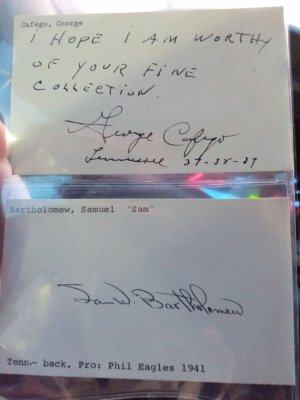 Cafego, George
I HOPE I AM WORTHY
OF YOUR FINE
COLLECTION.
George Cafego
Tennessee 37-38-39
Bartholomew, Samuel "Sam"
Sam W. Bartholomew
Tenn.- back, Pro: Phil Eagles 1941